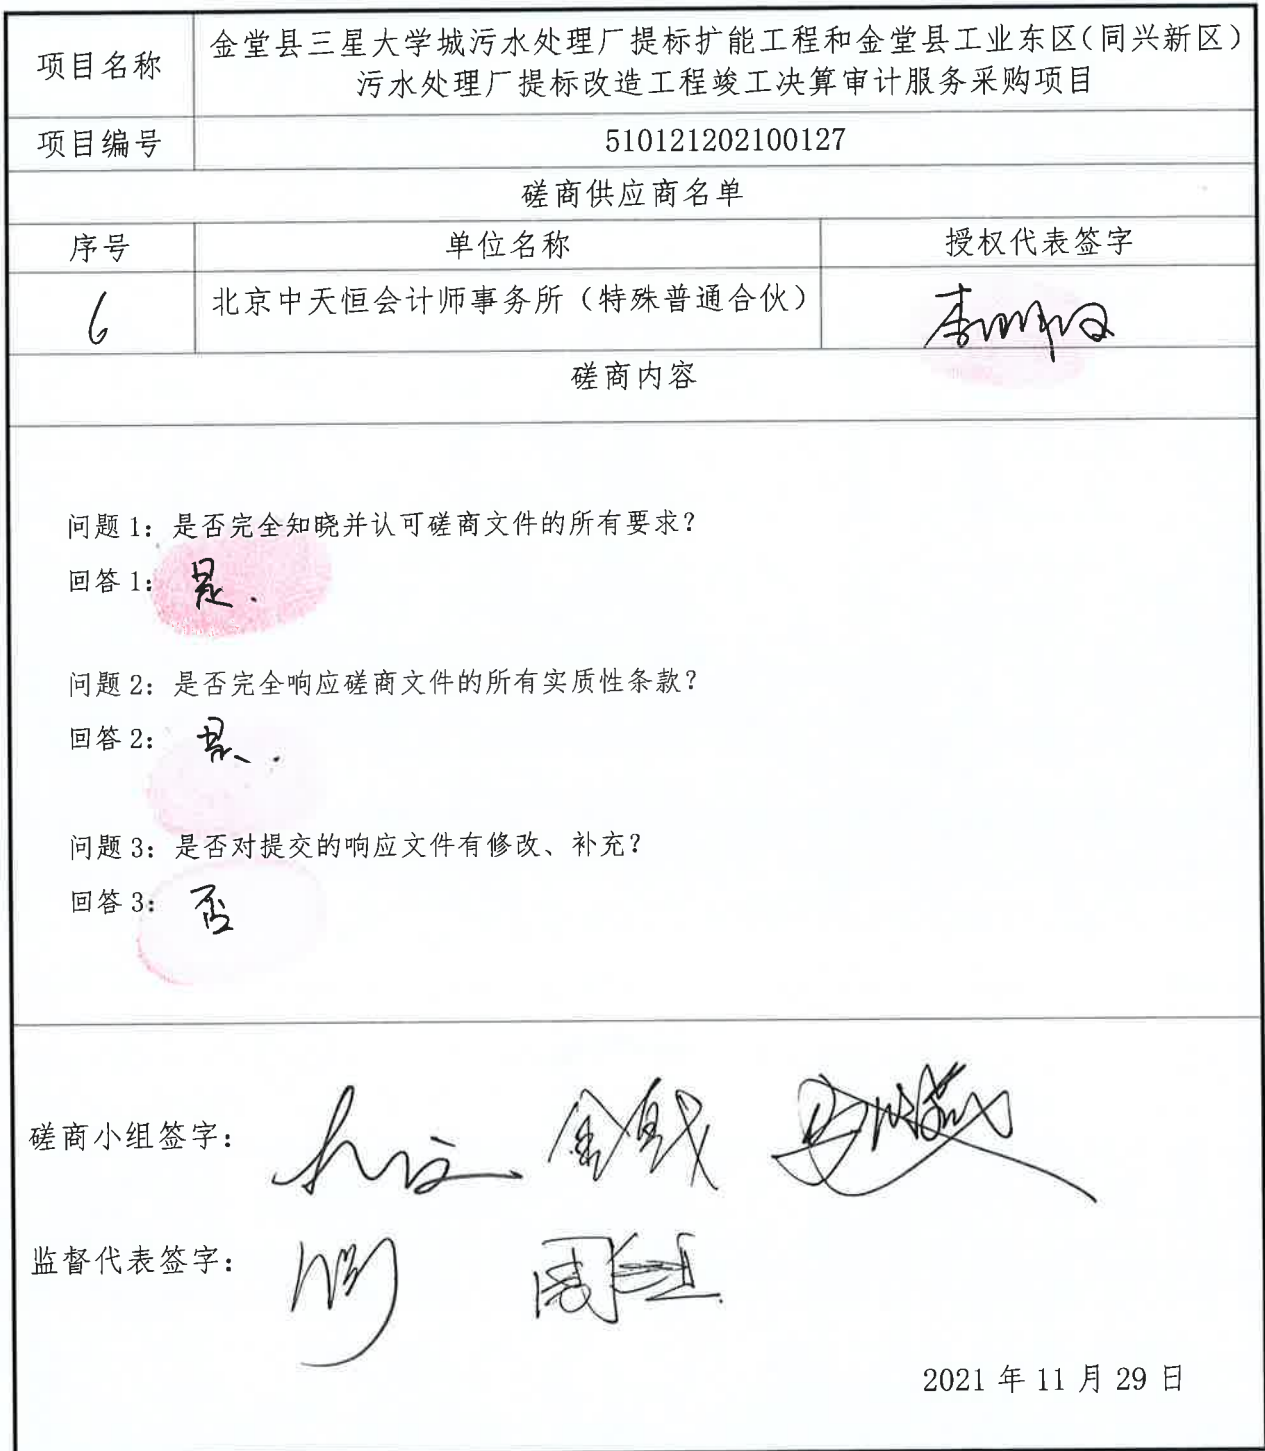 项目名称
金堂县三星大学城污水处理厂提标扩能工程和金堂县工业东区(同兴新区)
污水处理厂提标改造工程竣工决算审计服务采购项目
项目编号
510121202100127
磋商供应商名单
序号
单位名称
授权代表签字
6
北京中天恒会计师事务所（特殊普通合伙）
磋商内容
问题 1：是否完全知晓并认可磋商文件的所有要求？
回答 1：是.
问题 2：是否完全响应磋商文件的所有实质性条款？
回答 2：是.
问题 3：是否对提交的响应文件有修改、补充？
回答 3：否
磋商小组签字：
监督代表签字：
2021 年 11 月 29 日